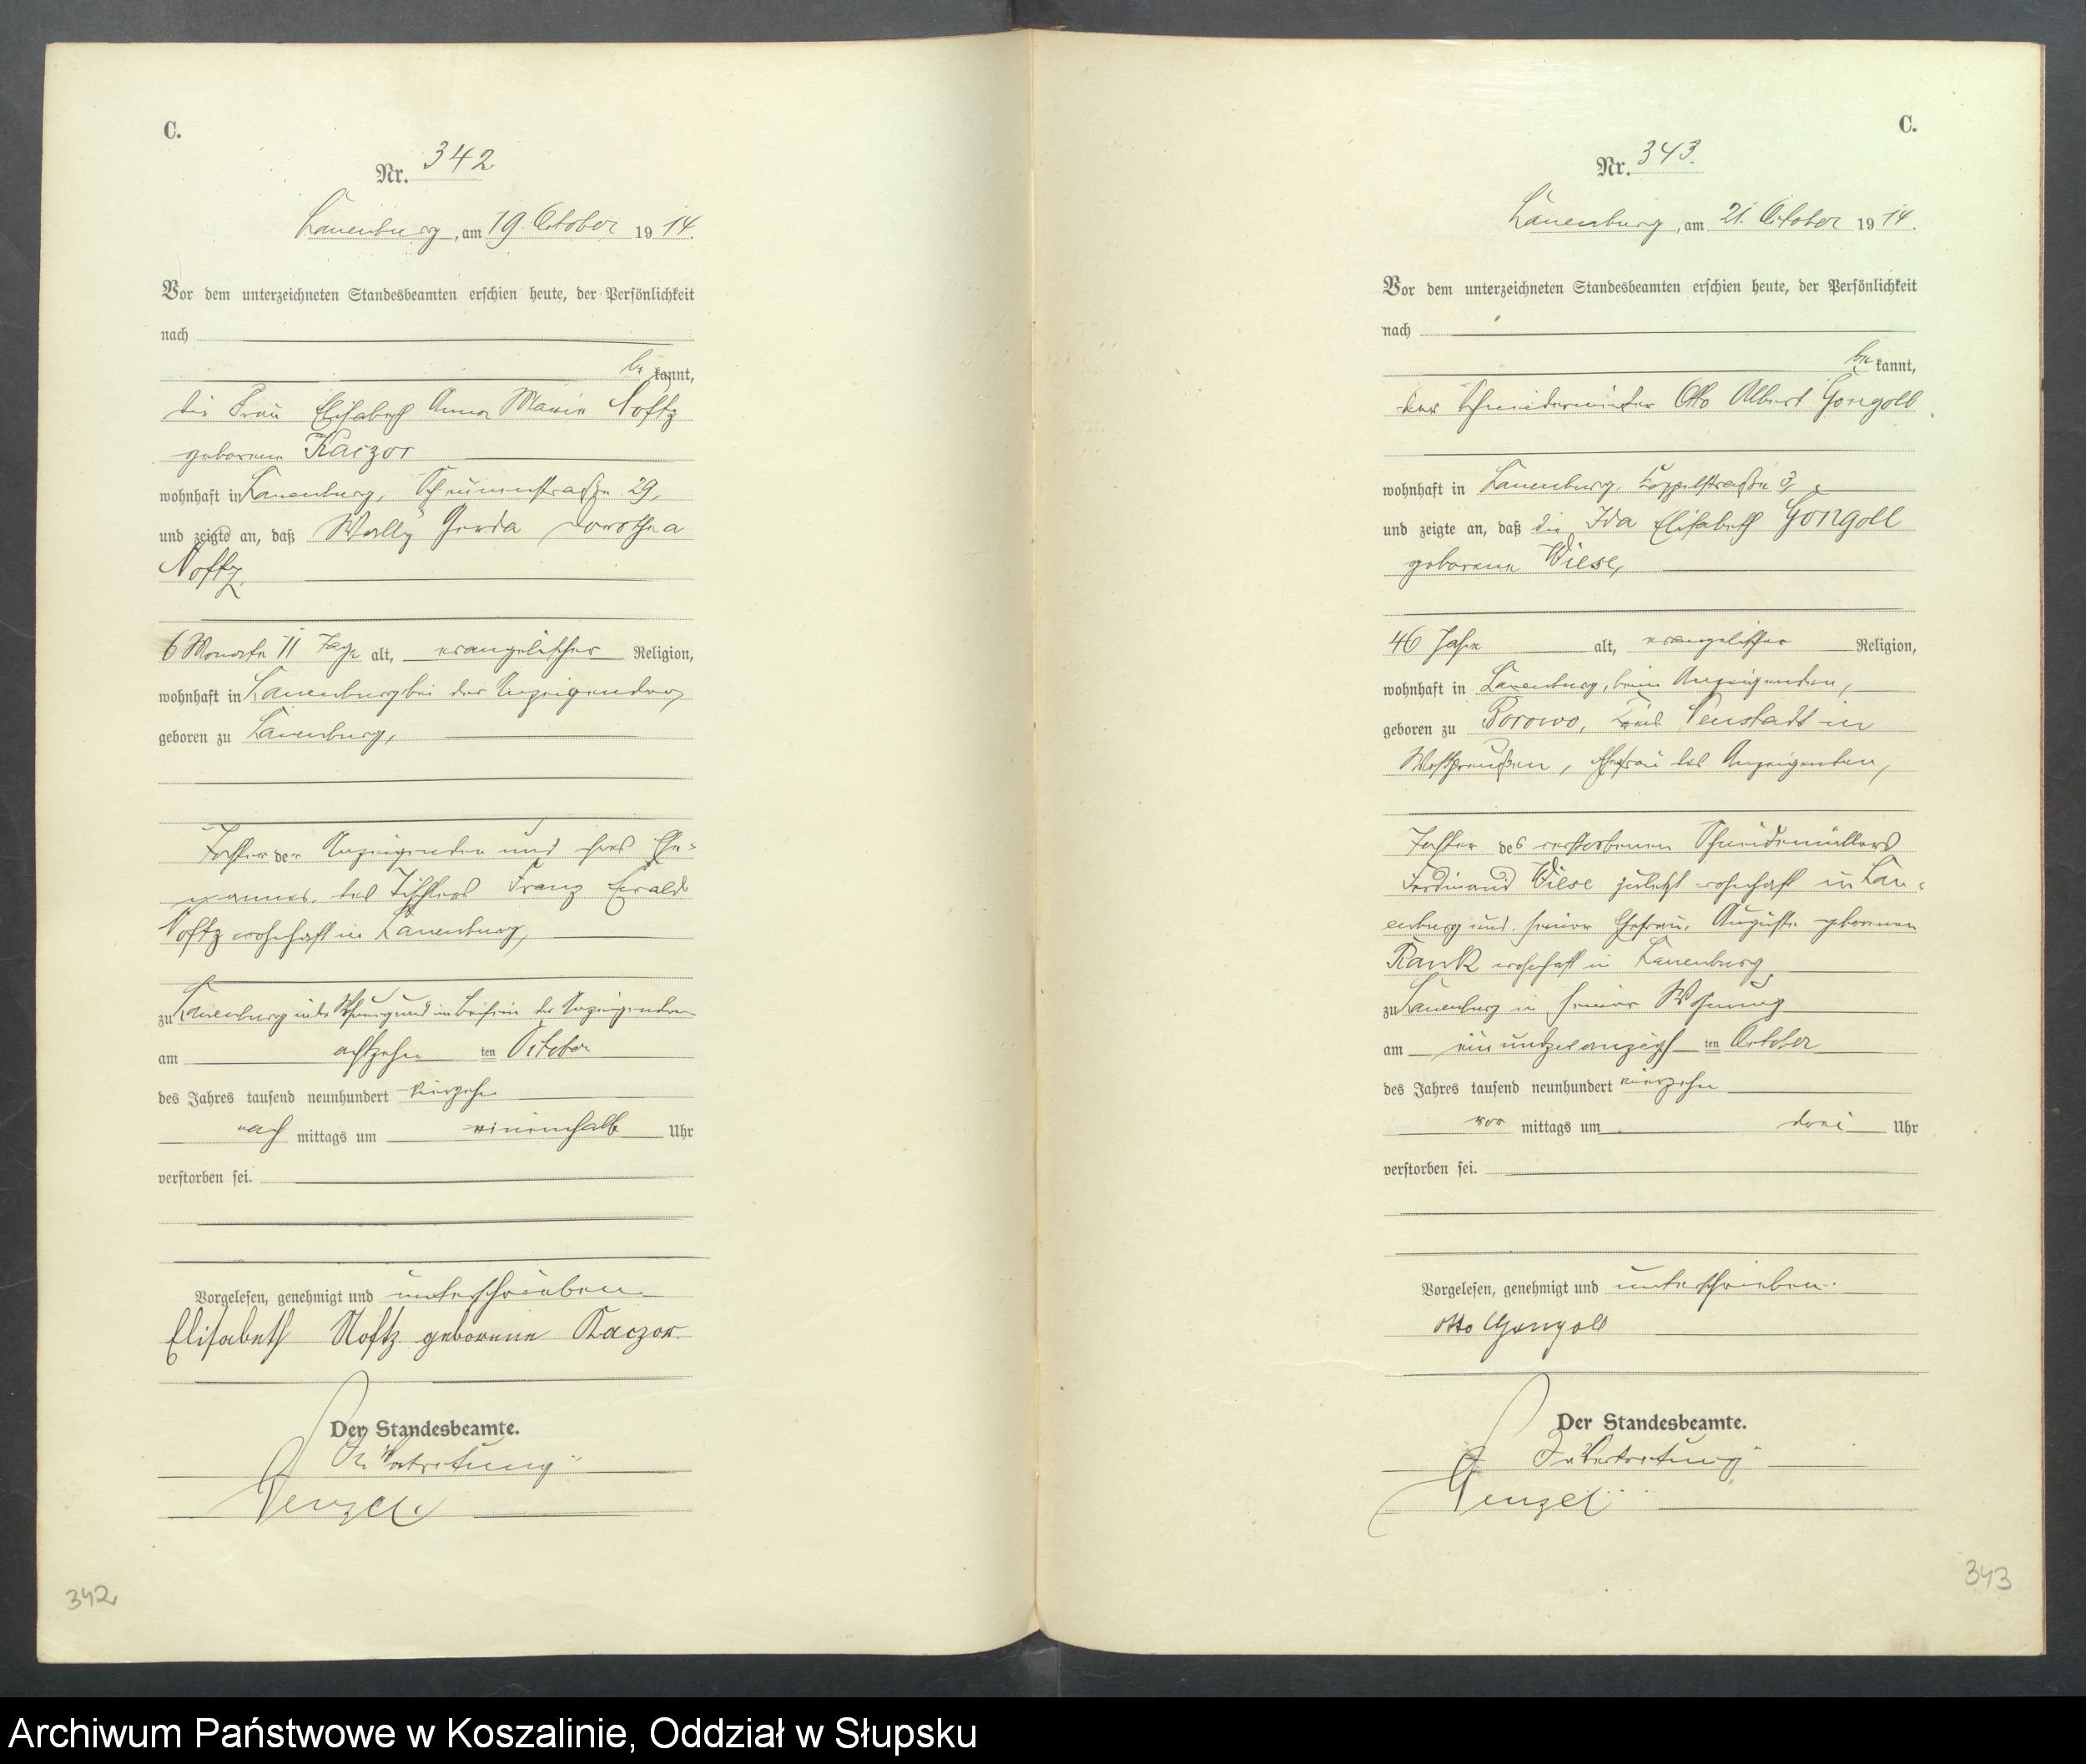 C.
Nr. 342
Lauenburg, am 19. October 1914.
Vor dem unterzeichneten Standesbeamten erschien heute, der Persönlichkeit
nach
be kannt,
die Frau Elisabeth Anna Marie Noftz
geborene Kaczor
wohnhaft in Lauenburg, Scheunenstraße 29,
und zeigte an, daß Wally Gerda Dorothea
Noftz,
6 Monate 11 Tage alt, evangelischer Religion,
wohnhaft in Lauenburg bei der Anzeigenden,
geboren zu Lauenburg,
Tochter der Anzeigenden und ihres Ehe-
mannes, des Tischlers Franz Ewald
Noftz wohnhaft in Lauenburg,
zu Lauenburg in der Wohnung und im Beisein der Anzeigenden
am achtzehn ten October
des Jahres tausend neunhundert vierzehn
nach mittags um eineinhalb Uhr
verstorben sei.
Vorgelesen, genehmigt und unterschrieben
Elisabeth Noftz geborene Kaczor.
Der Standesbeamte.
In Vertretung
342
C.
Nr. 343.
Lauenburg, am 21. October 1914.
Vor dem unterzeichneten Standesbeamten erschien heute, der Persönlichkeit
nach
be kannt,
der Schneidermeister Otto Albert Gongoll
wohnhaft in Lauenburg, Koppelstraße 3,
und zeigte an, daß die Ida Elisabeth Gongoll
geborene Wiese,
46 Jahre alt, evangelischer Religion,
wohnhaft in Lauenburg, beim Anzeigenden,
geboren zu Borowo, Kreis Neustadt in
Westpreußen, Ehefrau des Anzeigenden,
Tochter des verstorbenen Schneidemüllers
Ferdinand Wiese zuletzt wohnhaft in Lau-
enburg und seiner Ehefrau, Auguste geborenen
Rank wohnhaft in Lauenburg
zu Lauenburg in seiner Wohnung
am einundzwanzigs ten October
des Jahres tausend neunhundert vierzehn
vor mittags um drei Uhr
verstorben sei.
Vorgelesen, genehmigt und unterschrieben.
Otto Gongoll
Der Standesbeamte.
In Vertretung
343
Archiwum Państwowe w Koszalinie, Oddział w Słupsku